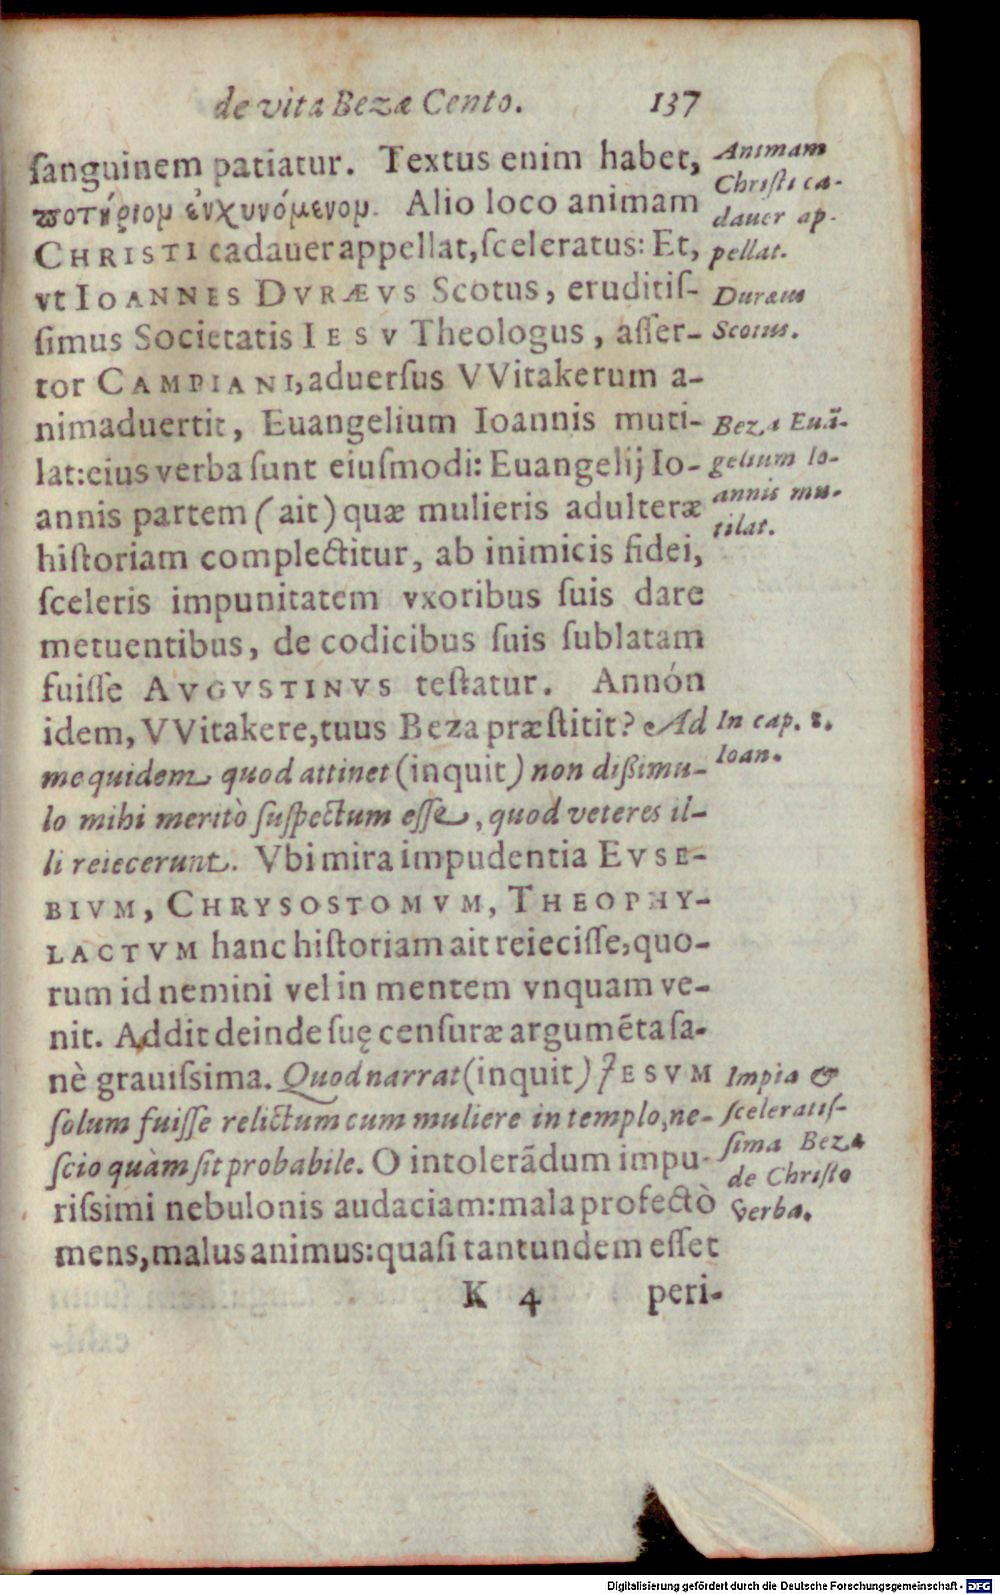 de vita Bezæ Cento. 137
ſanguinem patiatur. Textus enim habet,
ποτήριον ἐνχυνόμενον. Alio loco animam
CHRISTI cadauer appellat, ſceleratus: Et,
vt IOANNES DVRÆVS Scotus, eruditiſ-
ſimus Societatis IESV Theologus, aſſer-
tor CAMPIANI, aduerſus VVitakerum a-
nimaduertit, Euangelium Ioannis muti-
lat: eius verba ſunt eiuſmodi: Euangelij Io-
annis partem (ait) quæ mulieris adulteræ
hiſtoriam complectitur, ab inimicis fidei,
ſceleris impunitatem vxoribus ſuis dare
metuentibus, de codicibus ſuis ſublatam
fuiſſe AVGVSTINVS teſtatur. Annón
idem, VVitakere, tuus Beza præſtitit? Ad
me quidem quod attinet (inquit) non dißimu-
lo mihi meritò ſuſpectum eſſe, quod veteres il-
li reiecerunt. Vbi mira impudentia EVSE-
BIVM, CHRYSOSTOMVM, THEOPHY-
LACTVM hanc hiſtoriam ait reieciſſe, quo-
rum id nemini vel in mentem vnquam ve-
nit. Addit deinde ſuę cenſuræ argumēta ſa-
nè grauiſsima. Quod narrat (inquit) IESVM
ſolum fuiſſe relictum cum muliere in templo, ne-
ſcio quàm ſit probabile. O intolerādum impu-
riſsimi nebulonis audaciam: mala profectò
mens, malus animus: quaſi tantundem eſſet
K 4 peri-
Animam
Chriſti ca-
dauer ap-
pellat.
Duræus
Scotus.
Beza Euā-
gelium Io-
annis mu-
tilat.
In cap. 8.
Ioan.
Impia &
ſceleratiſ-
ſima Bezæ
de Chriſto
verba.
Digitalisierung gefördert durch die Deutsche Forschungsgemeinschaft - DFG